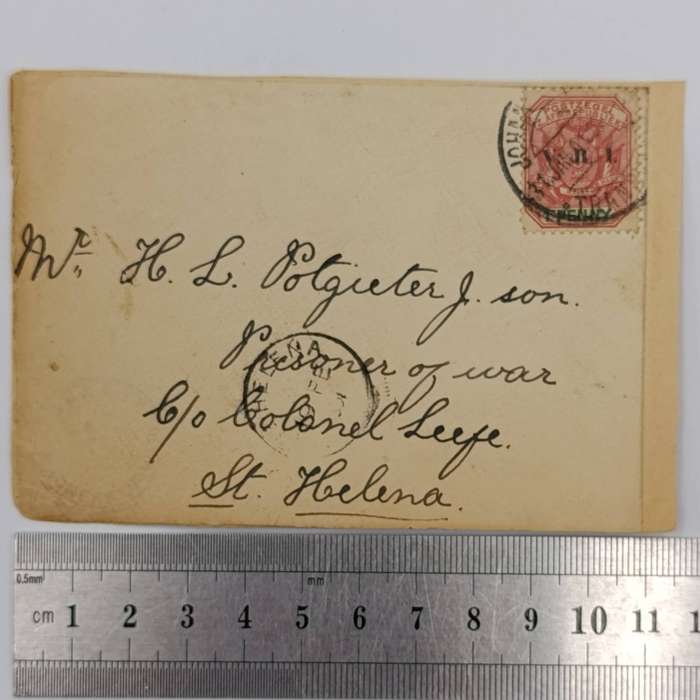 POSTZEGEL
R. I.
1 PENNY
Mr. H. L. Potgieter J. son.
Prisoner of war
C/o Colonel Leefe.
St. Helena.
HELENA
0.5mm
mm
cm 1 2 3 4 5 6 7 8 9 10 11